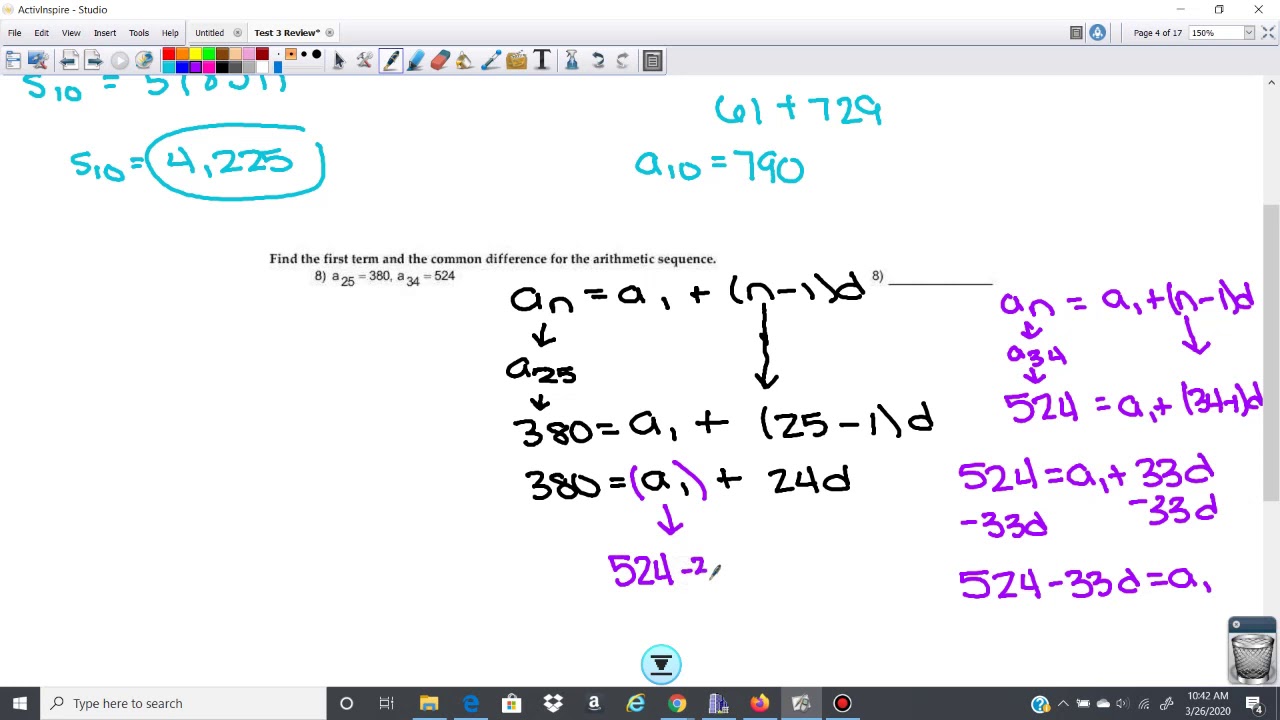 ActivInspire - Studio
File Edit View Insert Tools Help Untitled Test 3 Review* Page 4 of 17 150%
S10 = 5(
61 + 729
S10 = 4,225
a10 = 790
Find the first term and the common difference for the arithmetic sequence.
8) a25 = 380, a34 = 524
8)
an = a1 + (n-1)d
a25
380 = a1 + (25-1)d
380 = (a1) + 24d
524 -2
an = a1 + (n-1)d
a34
524 = a1 + (34-1)d
524 = a1 + 33d
-33d -33d
524 - 33d = a1
Type here to search
10:42 AM
3/26/2020
4